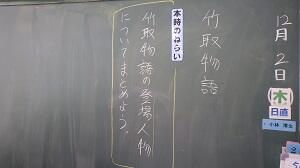 12月2日
(木)
日直
小林
竹取物語
本時のねらい
竹取物語の登場人物
についてまとめよう。